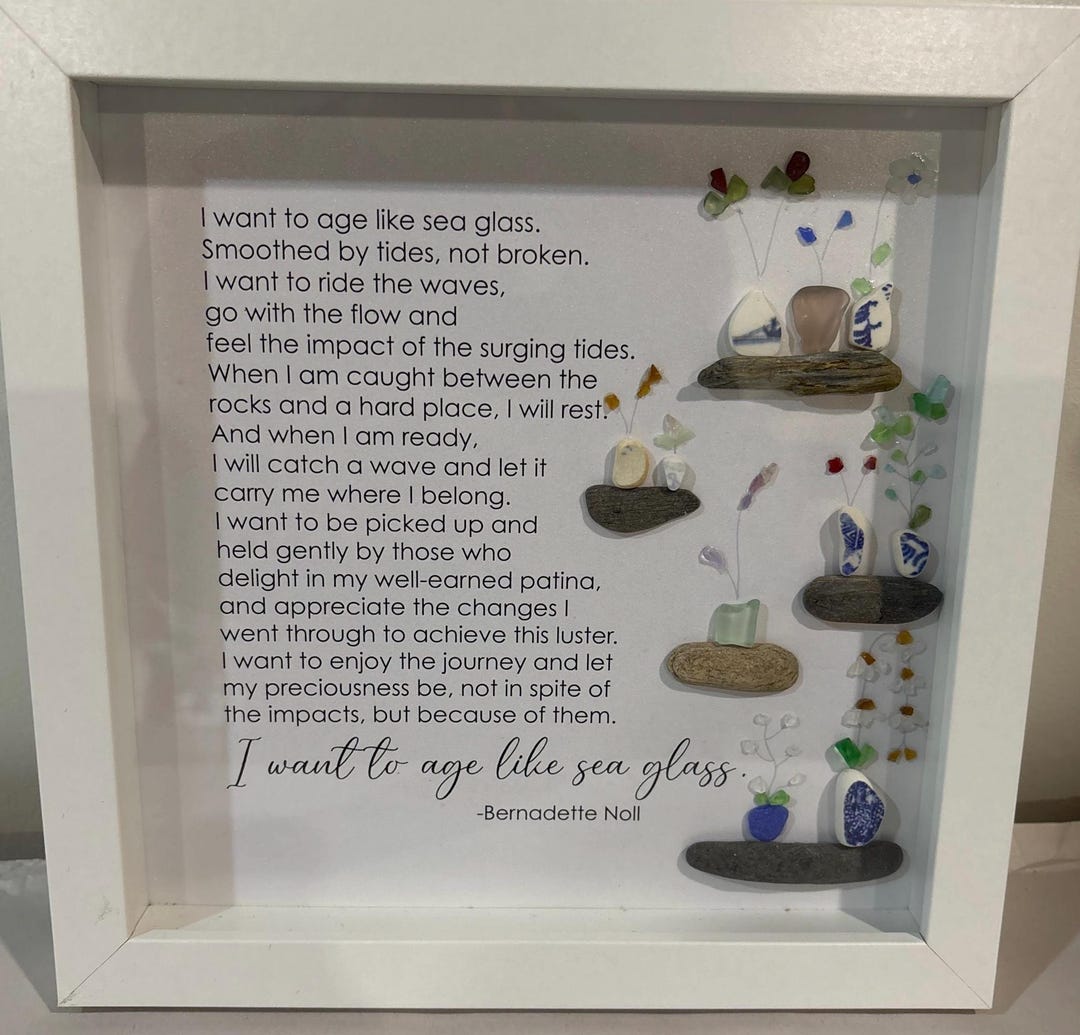 I want to age like sea glass.
Smoothed by tides, not broken.
I want to ride the waves,
go with the flow and
feel the impact of the surging tides.
When I am caught between the
rocks and a hard place, I will rest.
And when I am ready,
I will catch a wave and let it
carry me where I belong.
I want to be picked up and
held gently by those who
delight in my well-earned patina,
and appreciate the changes I
went through to achieve this luster.
I want to enjoy the journey and let
my preciousness be, not in spite of
the impacts, but because of them.
I want to age like sea glass.
-Bernadette Noll